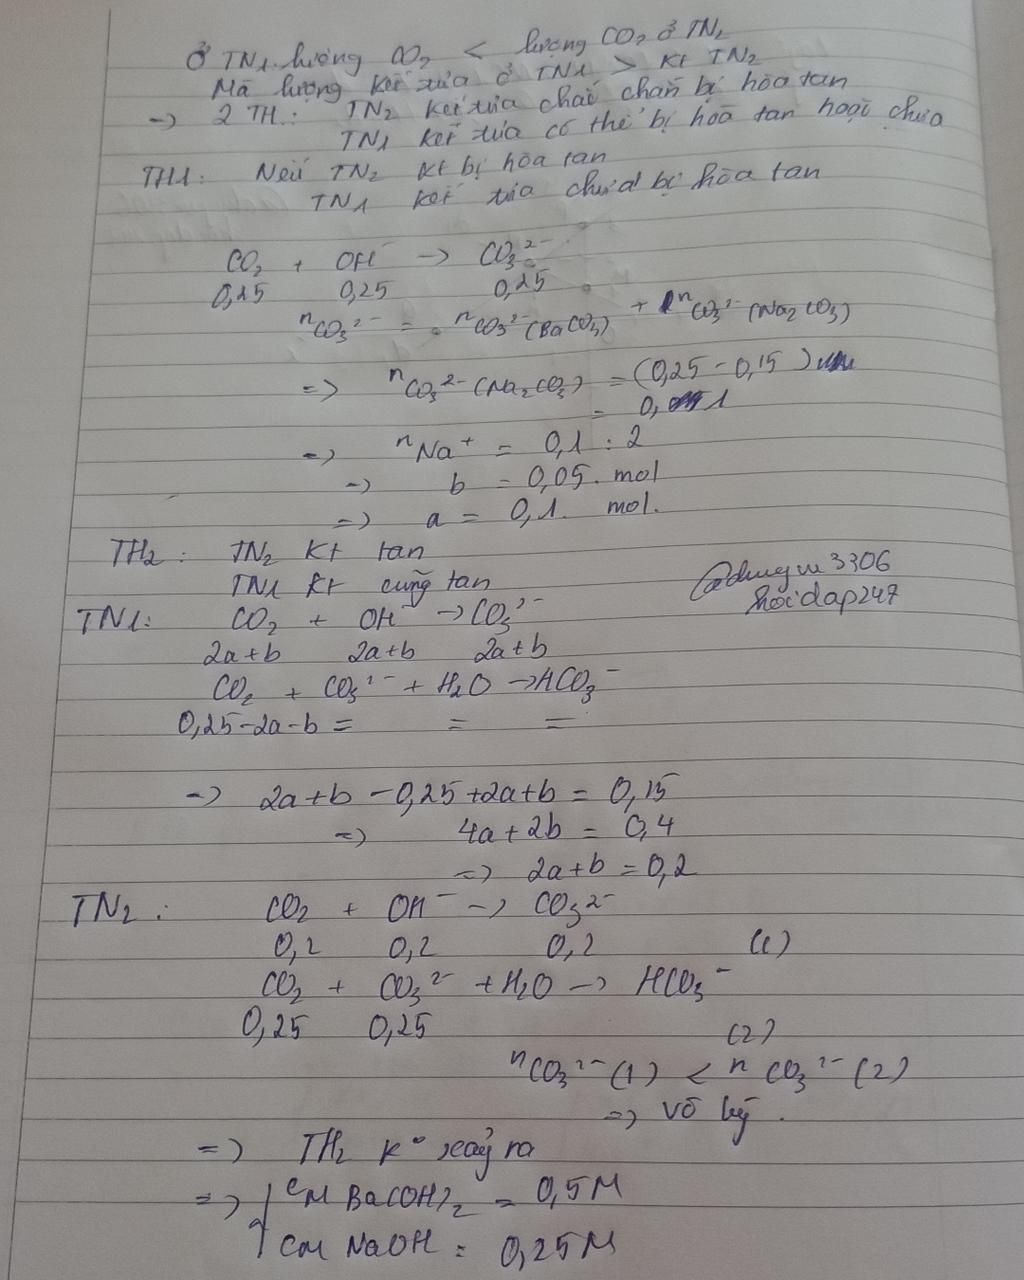 Ở TN1 lượng CO₂ < lượng CO₂ ở TN₂
Mà lượng kết tủa ở TN1 > Kt TN2
-> 2 TH: TN₂ kết tủa chắc chắn bị hòa tan
TN1 kết tủa có thể bị hòa tan hoặc chưa
TH1: Nếu TN₂ kt bị hòa tan
TN1 kết tủa chưa bị hòa tan
CO₂ + OH⁻ -> CO₃²⁻
0,25 0,25 0,25
nCO₃²⁻ = nCO₃²⁻(BaCO₃) + nCO₃²⁻(Na₂CO₃)
=> nCO₃²⁻(Na₂CO₃) = (0,25 - 0,15)
= 0,1
=> nNa⁺ = 0,1 : 2
-> b = 0,05 mol
=> a = 0,1 mol.
TH₂: TN₂ Kt tan
TN1 kt cũng tan
@dungvu3306
hoidap247
TN1: CO₂ + OH⁻ -> CO₃²⁻
2a+b 2a+b 2a+b
CO₂ + CO₃²⁻ + H₂O -> HCO₃⁻
0,25-2a-b = = =
-> 2a+b - 0,25+2a+b = 0,15
=> 4a+2b = 0,4
=> 2a+b = 0,2
TN₂: CO₂ + OH⁻ -> CO₃²⁻
0,2 0,2 0,2 (1)
CO₂ + CO₃²⁻ + H₂O -> HCO₃⁻
0,25 0,25 (2)
nCO₃²⁻(1) < nCO₃²⁻(2)
=> vô lý.
=> TH₂ k° xảy ra
=> { CM Ba(OH)₂ = 0,5M
CM NaOH = 0,25M